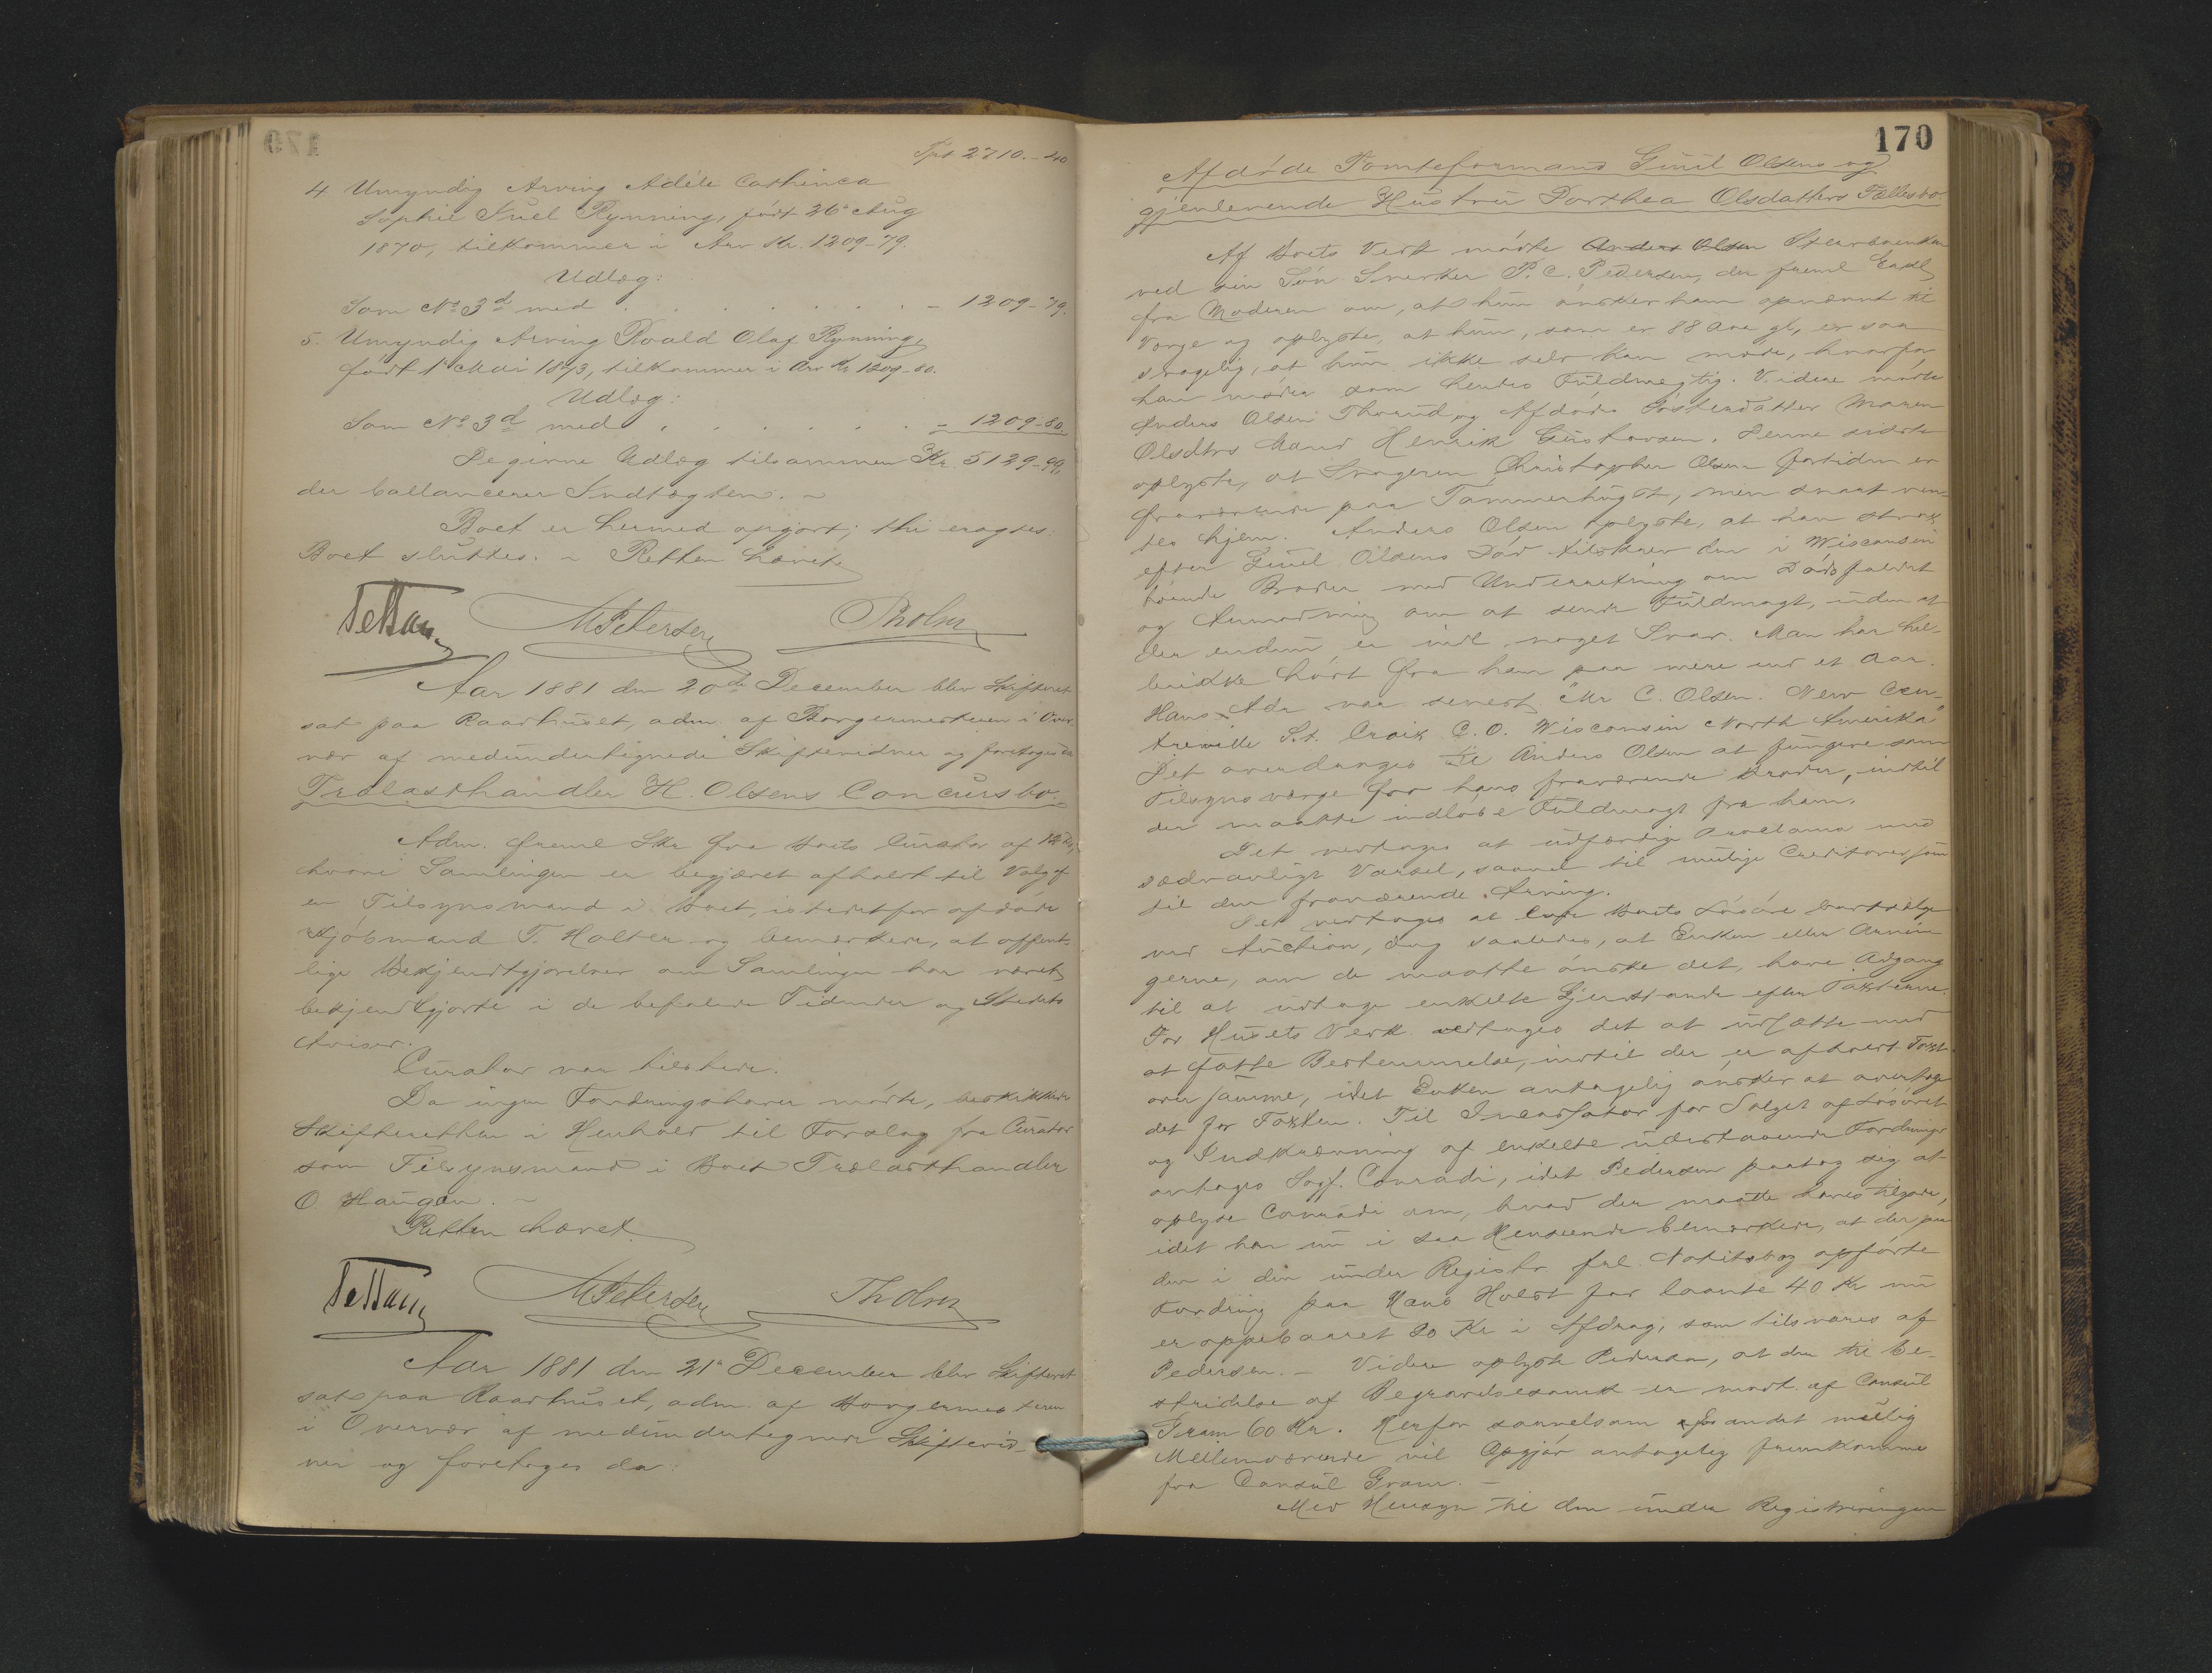 Tpt 2710.-40
4. Umyndig Arving Adéle Cathinca
Sophie Juel Rynning, født 26de Aug
1870, tilkommer i Arv Kr. 1209-79.
Udlæg:
Som No 3d med . . . . . . - 1209-79.
5. Umyndig Arving Roald Olaf Rynning,
født 1ste Mai 1873, tilkommer i Arv Kr 1209-80.
Udlæg:
Som No 3d med . . . . . . - 1209-80.
De givne Udlæg tilsammen Kr. 5129-99,
der ballancerer Indtægten. ~
Boet er hermed opgjort; thi eragtes:
Boet sluttes. ~ Retten hævet.
MPetersen Tholm
Aar 1881 den 20de December blev Skifteret
sat paa Raadhuset, adm. af Borgermesteren i Over-
vær af medundertegnede Skiftevidner og foretoges da
Trælasthandler H. Olsens Concursbo.
Adm. freml Skr fra Boets Curator af
hvori Samlingen er begjæret afholdt til Valg af
en Tilsynsmand i Boet, istedetfor afdøde
Kjøbmand T. Holter og bemærkede, at offent-
lige Bekjendtgjørelser om Samlingen har været
bekjendtgjorte i de befalede Tidender og Stedets
Aviser.
Curator var tilstede.
Da ingen Fordringshaver mødte, beskikkede
Skifteretten i Henhold til Forslag fra Curator
som Tilsynsmand i Boet Trælasthandler
O. Haugan. ~
Retten hævet.
MPetersen Tholm
Aar 1881 den 21de December blev Skifteret
sat paa Raadhuset, adm. af Borgermesteren
i Overvær af medundertegnede Skiftevid-
ner og foretoges da:
170
Afdøde Tomteformand Guul Olsens og
gjenlevende Hustru Dorthea Olsdatters Fællesbo.
Af Boets Vedk mødte Anders Olsen Stervboenken
ved sin Søn Snerker P. C. Pedersen, der freml
fra Moderen om, at hun ønsker ham opnævnt til
Værge og oplyste, at hun, som er 88 Aar gl, er saa
svagelig, at hun ikke selv kan møde, hvorfor
han møder som hendes Fuldmægtig. Videre mødte
Anders Olsen Thorud og Afdødes Søsterdatter Maren
Olsdtrs Mand Henrik Gustavsen. Denne sidste
oplyste, at Svogeren Christopher Olsen fortiden er
fraværende paa Tømmerhugst, men snart ven-
tes hjem. Anders Olsen oplyste, at han strax
efter Guul Olsens Død tilskrev den i Wisconsin
boende Broder med Underretning om Dødsfaldet
og Anmodning om at sende Fuldmagt, uden at
der endnu er indl. noget Svar. Man har hel-
ler ikke hørt fra ham paa mere end et Aar.
Hans Adr var senest "Mr C. Olsen. New Cen-
treville St. Croix C.O. Wisconsin North Amerika"
Det overdrages til Anders Olsen at fungere som
Tilsynsværge for hans fraværende Broder, indtil
der maatte indløbe Fuldmagt fra ham.
Det vedtoges at udfærdige Proclama med
sædvanligt Varsel, saavel til mulige Creditorer som
til den fraværende Arving.
Det vedtoges at lade Boets Løsøre bortsælge
ved Auction, dog saaledes, at Enken eller Arvin-
gerne, om de maatte ønske det, have Adgang
til at udtage enkelte Gjenstande efter Taxterne.
For Husets Vedk. vedtoges det at udsætte med
at fatte Bestemmelse, indtil der er afholdt Taxt
over samme, idet Enken antagelig ønsker at overtage
det for Taxten. Til Incassator for Salget af Løsøret
og Inddrivning af enkelte udestaaende Fordringer
antoges Sagf. Conradi, idet Pedersen paatog sig at
oplyse Conradi om, hvad der maatte haves tilgode,
idet han nu i saa Henseende bemærkede, at der paa
den i den under Registr. frl. Notitsbog opførte
Fordring paa Hans Holst for laante 40 Kr nu
er oppebaaret 20 Kr i Afdrag, som tilsvares af
Pedersen. - Videre oplyste Pedersen, at der til Be-
stridelse af Begravelsesomk er modt. af Consul
Gram 60 Kr. Herfor saavelsom for andet mulig
Mellemværende vil Opgjør antagelig fremkomme
fra Consul Gram. -
Med Hensyn til den under Registreringen